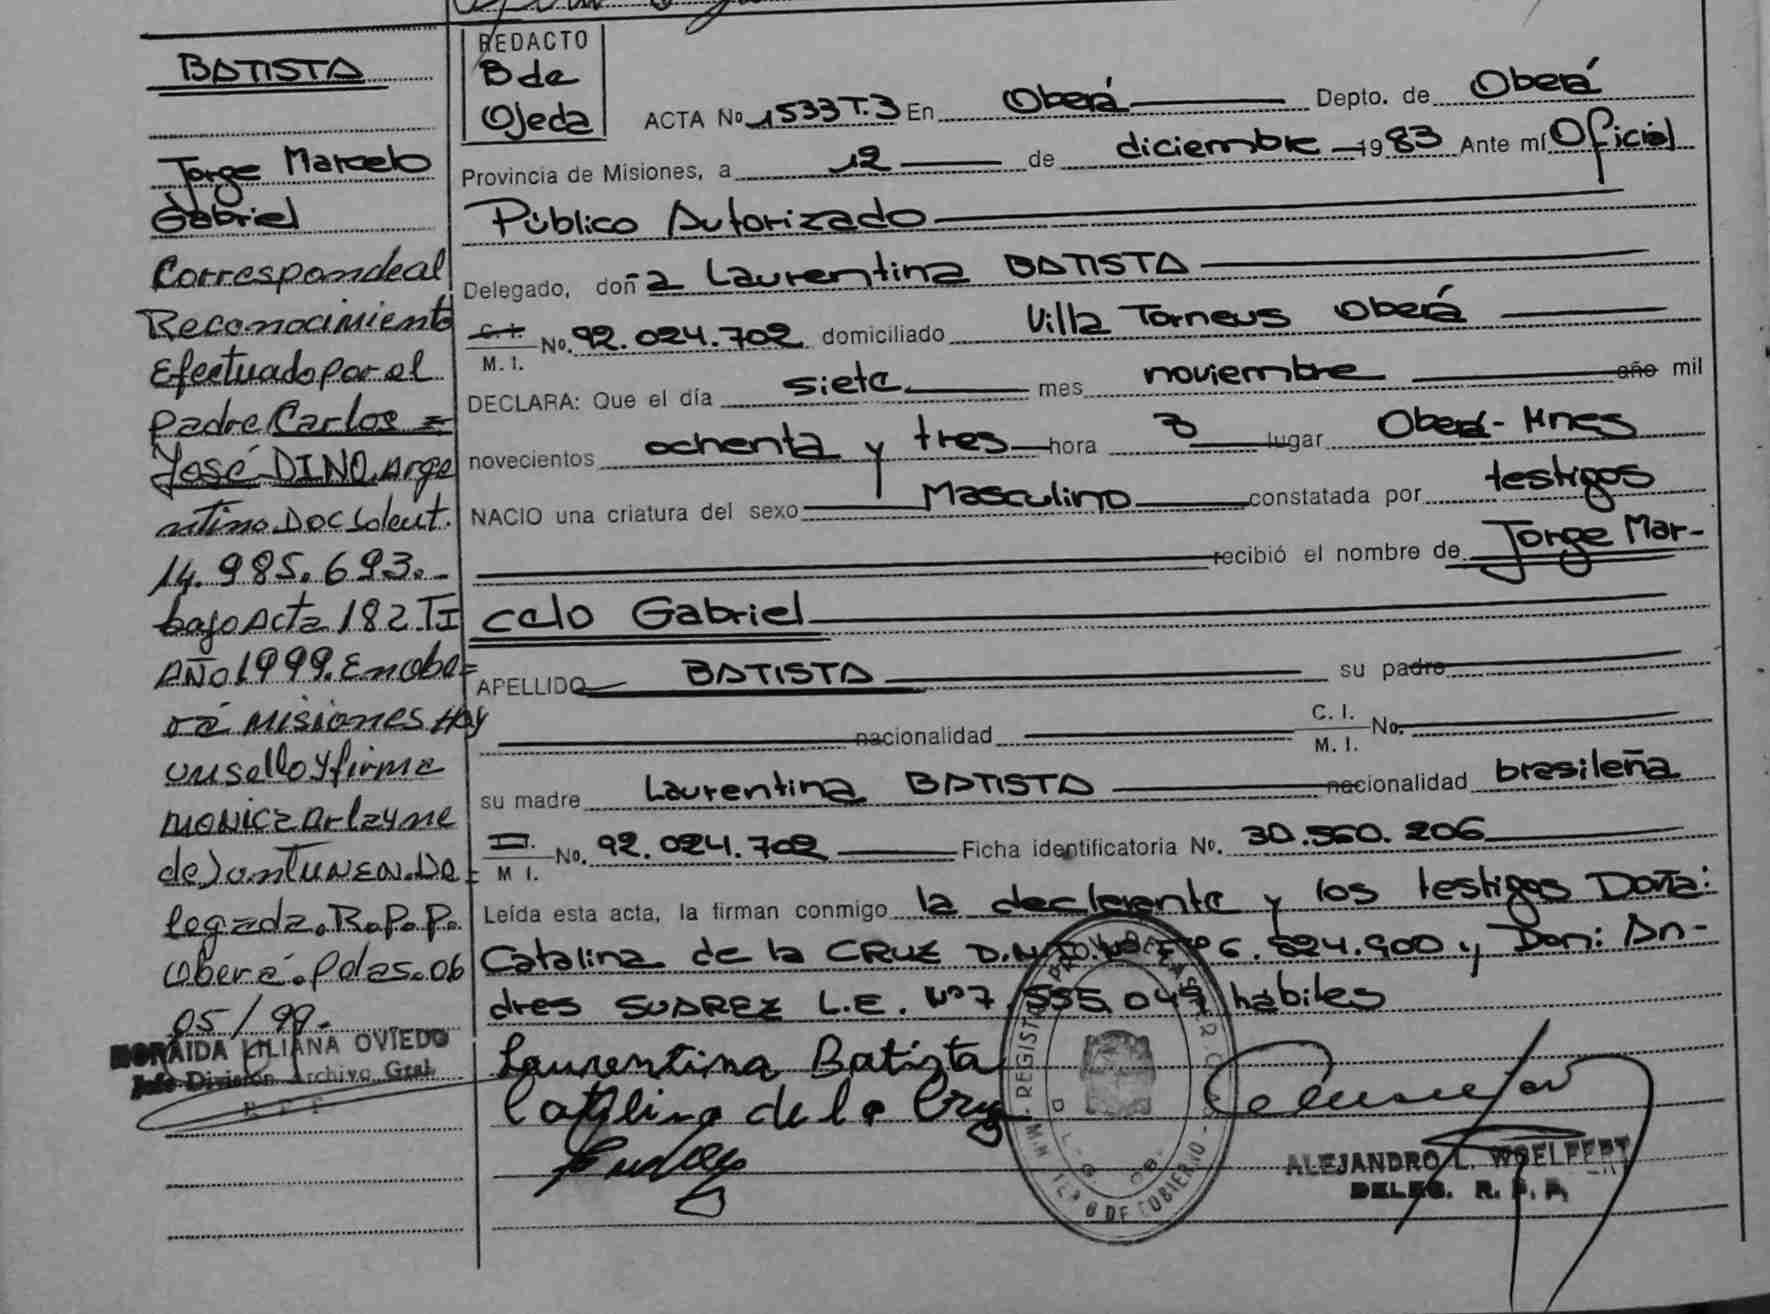 BATISTA
Jorge Marcelo
Gabriel
Correspondeal
Reconocimiento
Efectuado por el
padre Carlos =
José DINO. Arge
ntino Doc
14.985.693.-
bajo Acta 182 TI
AÑO 1999. En obe=
rá Misiones Hay
un sello y firma
Monica
de De=
legada. R.P.P.
Oberá. Pdas. 06
05/99-
LILIANA OVIEDO
Jefe División Archivo Gral.
REDACTO
B de
Ojeda
ACTA No 1533 T.3 En Oberá Depto. de Oberá
Provincia de Misiones, a 12 de diciembre 1983 Ante mí Oficial
Público Autorizado
Delegado, doña Laurentina BATISTA
C. I.
M. I. No. 92.024.702 domiciliado Villa Torneus Oberá
DECLARA: Que el día siete mes noviembre año mil
novecientos ochenta y tres hora lugar Oberá - Mnes
NACIO una criatura del sexo Masculino constatada por testigos
recibió el nombre de Jorge Mar-
celo Gabriel
APELLIDO BATISTA su padre
nacionalidad C. I.
M. I. No.
su madre Laurentina BATISTA nacionalidad brasileña
M I. No. 92.024.702 Ficha identificatoria No. 30.560.206
Leída esta acta, la firman conmigo la declarante y los testigos Doña:
Catalina de la CRUZ D.N.I. Nº 6.824.900 y Don: An-
dres SUAREZ L.E. Nº 7.555.049 hábiles
Laurentina Batista
Catalina de la Cruz
ALEJANDRO L. WOELFERT
DELEG. R. P. P.